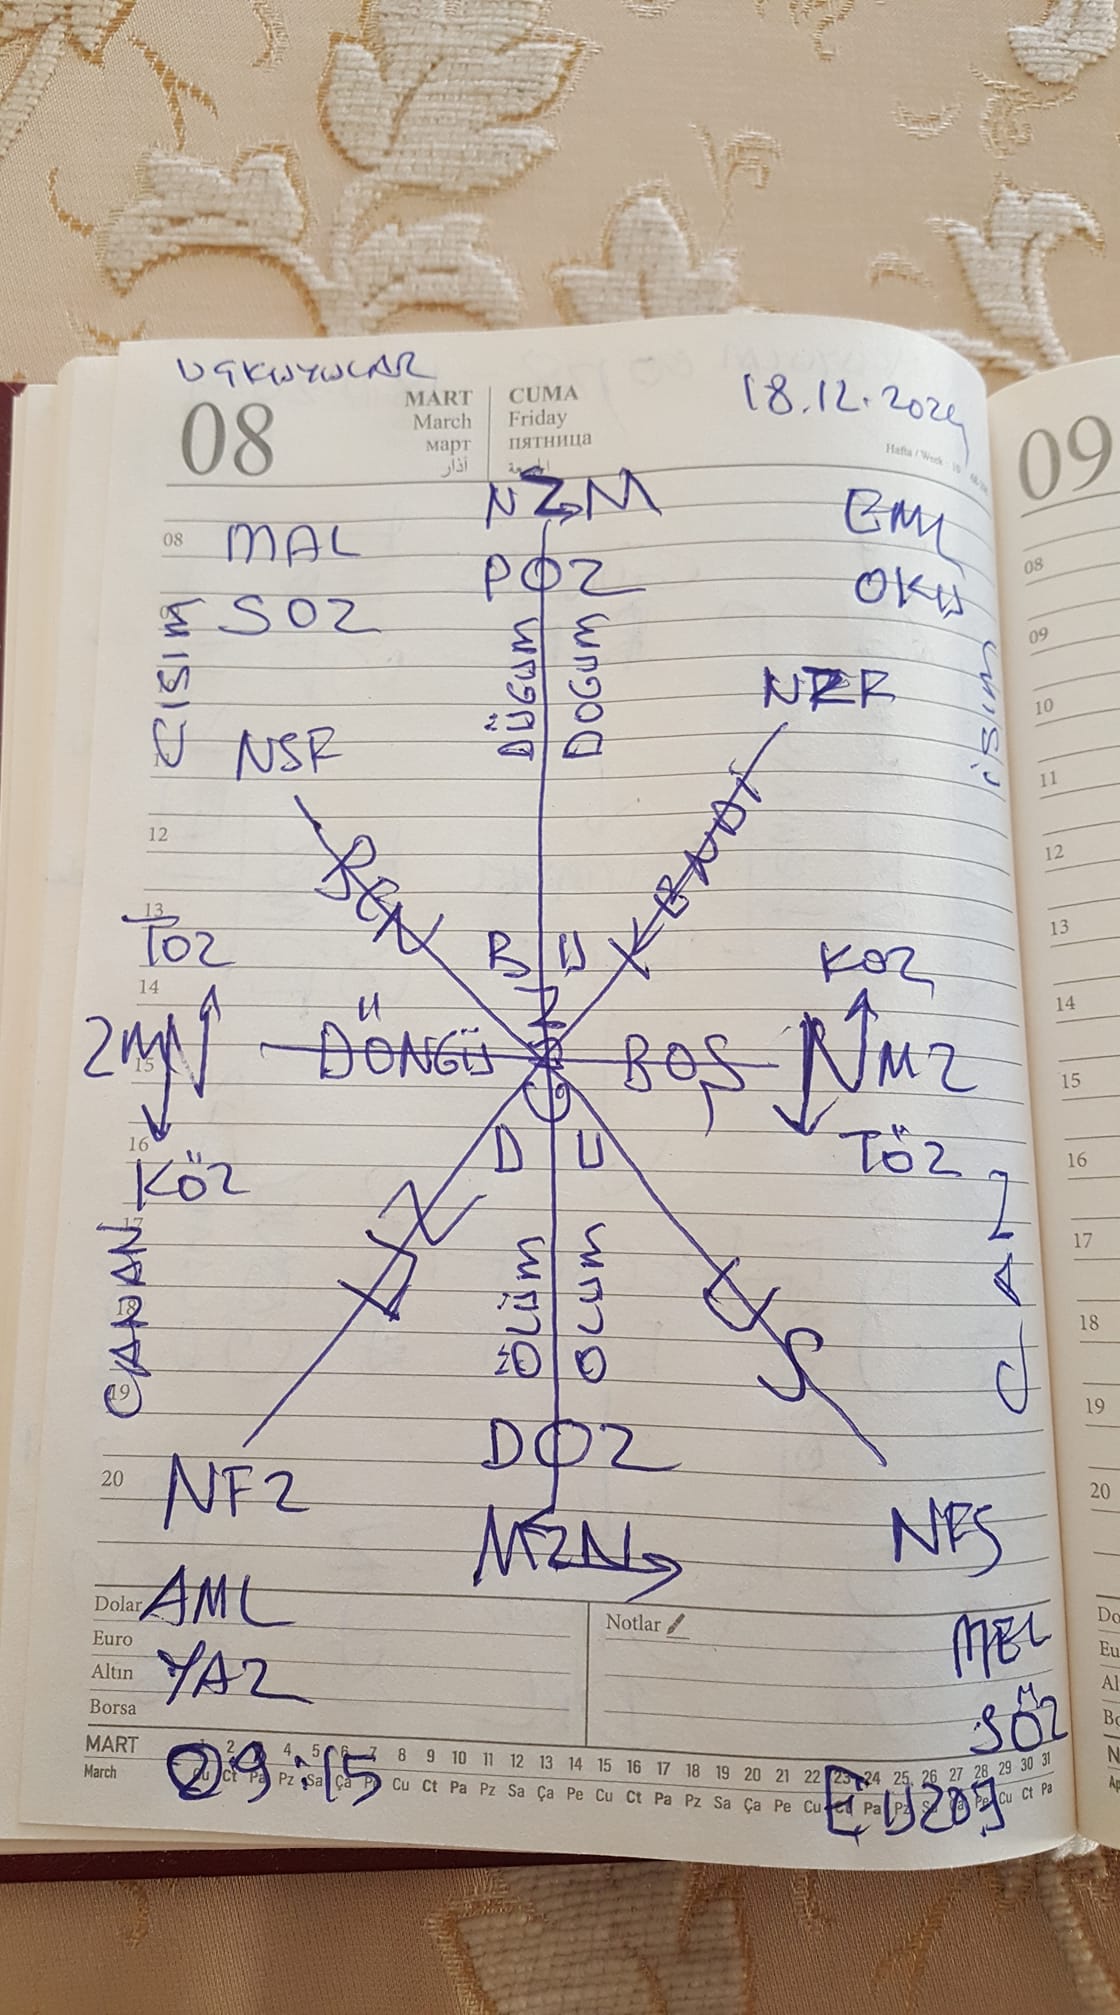 08
MART
March
март
آذار
CUMA
Friday
пятница
الجمعة
18.12.2024
Hafta / Week - 10
09
NZM
08 MAL
EML
POZ
OKU
SOZ
CISIM
DÜGUM
DOGUM
isim
NSR
NZR
12
BEN
BENDT
13
TOZ
B U
KOZ
14
ZMN
DÖNGÜ
BOŞ
NMZ
15
16
KÖZ
D U
TÖZ
17
CANAN
BİZ
ÖLÜM
OLUM
CAN
18
19
DOZ
20
NFZ
MZN
NFS
Dolar AML
Euro
Altın YAZ
Borsa
Notlar
MEL
SÖZ
MART 1 2 3 4 5 6 7 8 9 10 11 12 13 14 15 16 17 18 19 20 21 22 23 24 25 26 27 28 29 30 31
March Cu Ct Pa Pz Sa Ça Pe Cu Ct Pa Pz Sa Ça Pe Cu Ct Pa Pz Sa Ça Pe Cu Ct Pa Pz Sa Ça Pe Cu Ct Pa
09:15
08
09
10
11
12
13
14
15
16
17
18
19
20